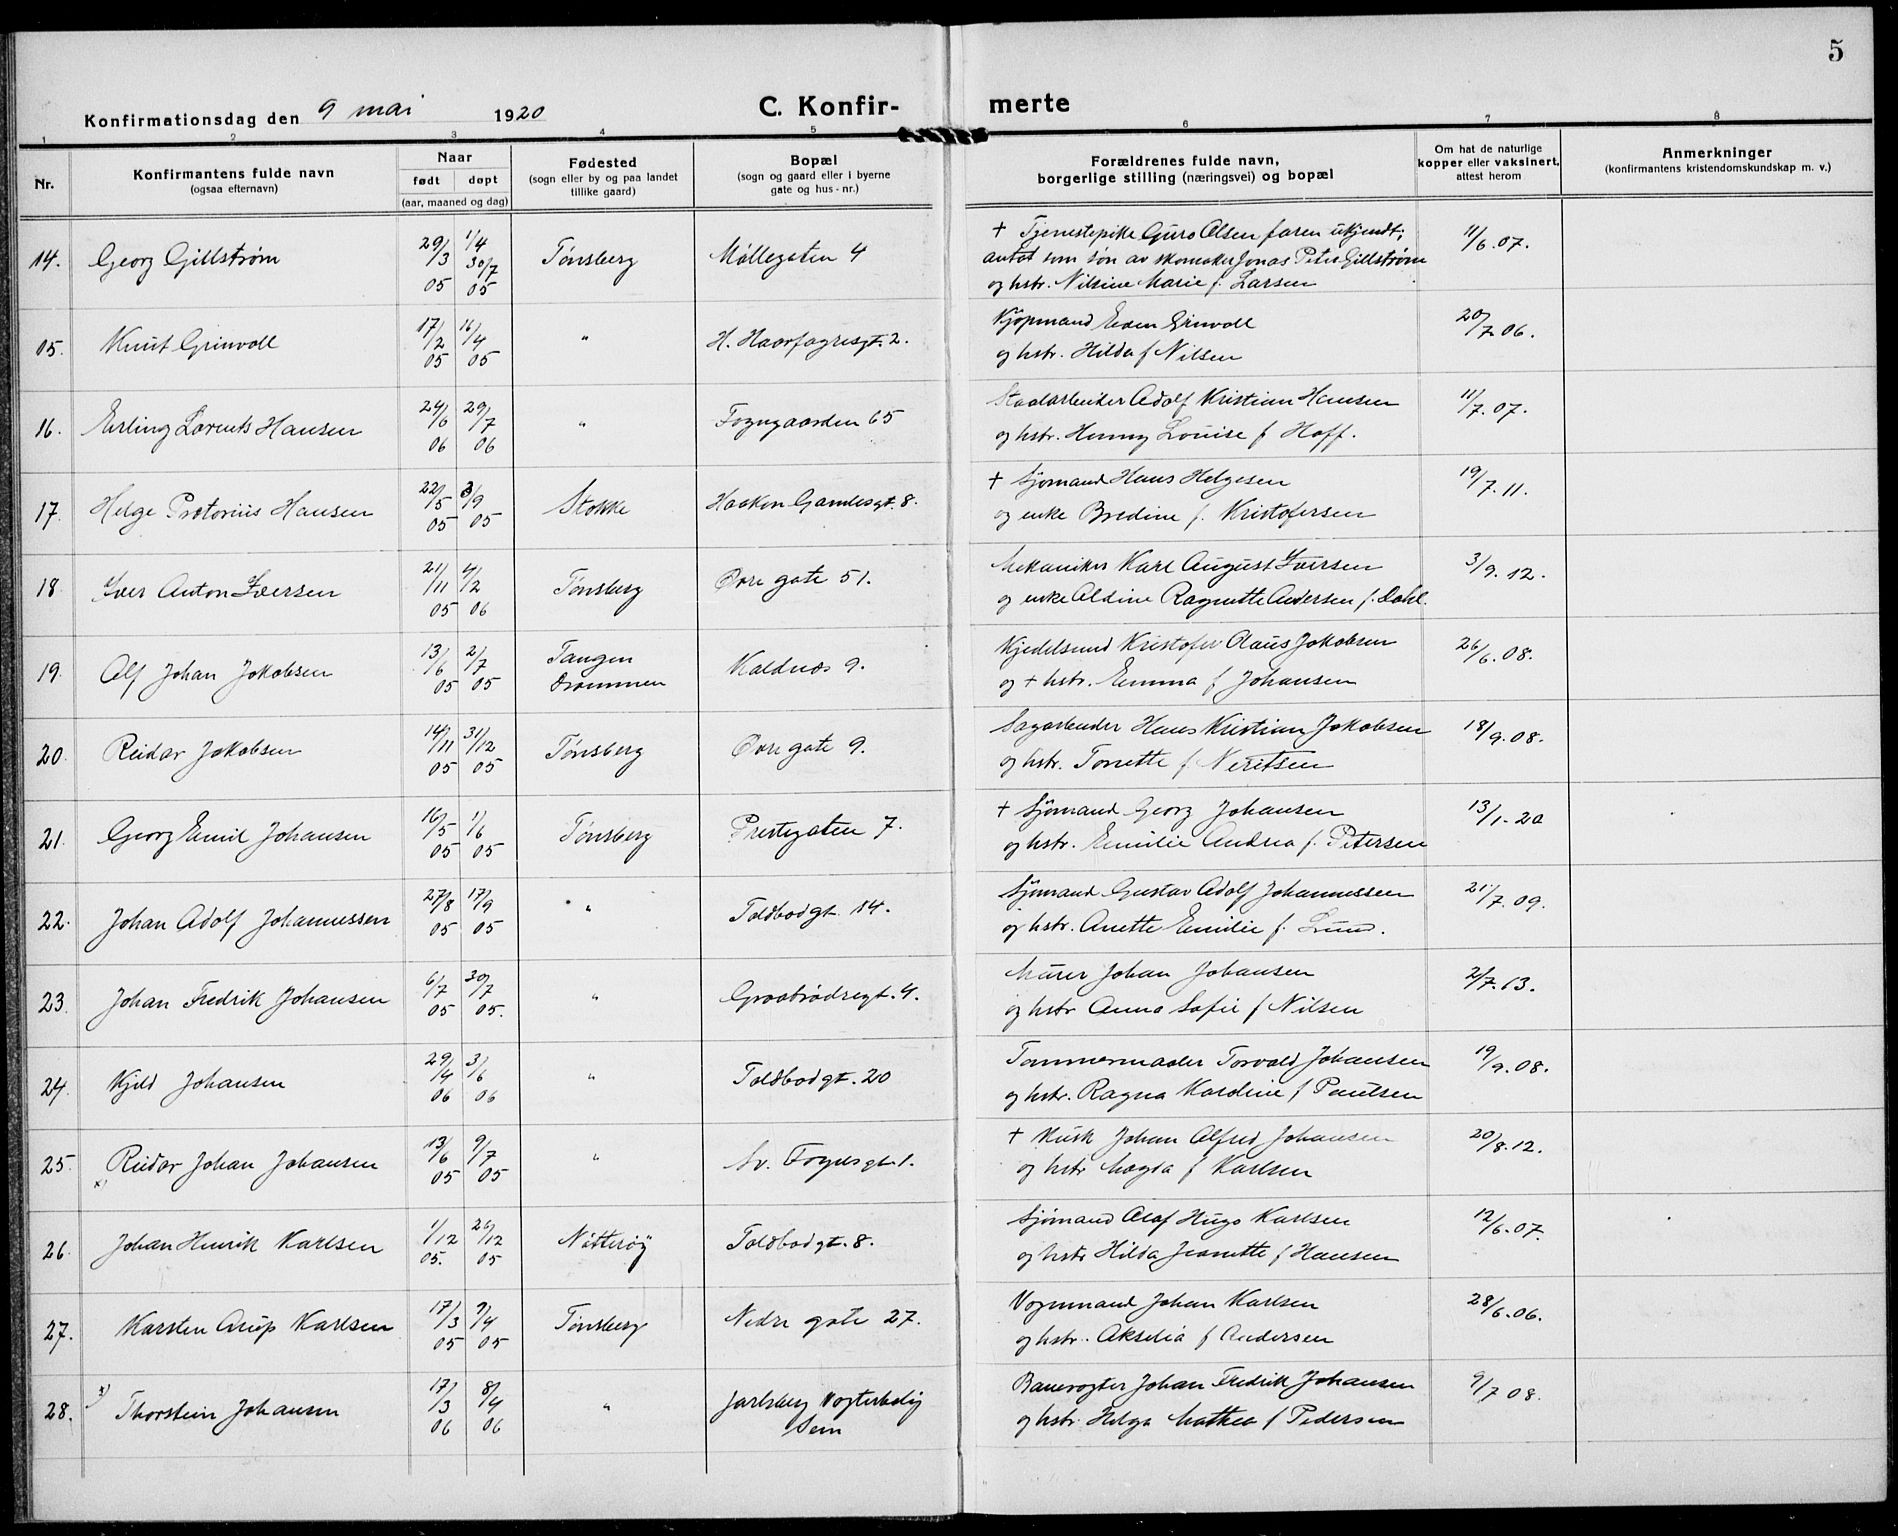 5
Konfirmationsdag den 9 mai 1920
C. Konfir-
merte
1 2 3 4 5 6 7 8
Nr.
Konfirmantens fulde navn
(ogsaa efternavn)
Naar
født døpt
(aar, maaned og dag)
Fødested
(sogn eller by og paa landet
tillike gaard)
Bopæl
(sogn og gaard eller i byerne
gate og hus-nr.)
Forældrenes fulde navn,
borgerlige stilling (næringsvei) og bopæl
Om hat de naturlige
kopper eller vaksinert,
attest herom
Anmerkninger
(konfirmantens kristendomskundskap m. v.)
14. Georg Gillstrøm 29/3 05 1/4 30/7 05 Tønsberg Møllegaten 4
+ Tjenestepike Guro Olsen faren ukjendt; 11/6.07.
antat som søn av skomaker Jonas Peter Gillstrøm
og hstr. Nilsine Marie f. Larsen
05. Knut Grinvoll 17/2 05 16/4 05 " H. Haarfagresgt. 2.
Kjøpmand Eden Grinvoll 20/7 06.
og hstr. Hilda f Nilsen
16. Erling Lorents Hansen 24/6 06 29/7 06 " Fogngaarden 65
Adolf Kristian Hansen 11/7.07.
og hstr. Henny Louise f Hoff.
17. Helge Pretorius Hansen 22/5 05 3/9 05 Stokke Haakon Gamlesgt. 8.
+ Sjømand Hans Helgesen 19/7.11.
og enke Bredine f. Kristofersen
18 Iver Anton Iversen 21/11 05 4/2 06 Tønsberg Øvre gate 51.
Mekaniker Karl August Iversen 3/9.12.
og enke Aldine Ragnette Andersen f. Dahl.
19. Alf Johan Jakobsen 13/6 05 2/7 05 Tangen Drammen Kaldnes 9.
Kjedelsmed Kristofer Olaus Jakobsen 26/6.08.
og + hstr. Emma f Johansen
20. Reidar Jakobsen 14/11 05 31/12 05 Tønsberg Øvre gate 9.
Sagarbeider Hans Kristian Jakobsen 18/9.08.
og hstr. Tonette f Neritsen
21. Georg Emil Johansen 16/5 05 1/6 05 Tønsberg Prestegaten 7.
+ Sjømand Georg Johansen 13/1-20
og hstr. Emilie Andrea f. Petersen
22. Johan Adolf Johannessen 27/8 05 17/9 05 " Toldbodgt. 14.
Sjømand Gustav Adolf Johannessen 21/7.09.
og hstr. Anette Emilie f. Lund.
23. Johan Fredrik Johansen 6/7 05 30/7 05. " Graabrødregt. 4.
Murer Johan Johansen 2/7.13.
og hstr Anna Sofie f Nilsen
24. Kjeld Johansen 29/4 06 3/6 06 " Toldbodgt. 20
Tømmermaaler Torvald Johansen 19/9.08.
og hstr. Ragna Karoline f Paulsen
25. x) Reidar Johan Johansen 13/6 05 9/7 05 " Sv. Foyns gt. 1.
+ Kusk Johan Alfred Johansen 20/8.12.
og hstr Magda f Karlsen
26. Johan Henrik Karlsen 1/12 05. 26/12 05 Nøtterøy Toldbodgt. 8.
Sjømand Olaf Hugo Karlsen 12/6.07.
og hstr Hilda Jeanette f Hansen
27. Karsten Arup Karlsen 17/3 05 9/4 05 Tønsberg Nedre gate 27.
Vognmand Johan Karlsen 28/6.06.
og hstr. Akselia f Andersen
28. x) Thorstein Johansen 17/3 06 8/4 06 " Jarlsberg Vogterbolig Sem
Banevogter Johan Fredrik Johansen 9/7 08.
og hstr. Helga Mathea f Pedersen